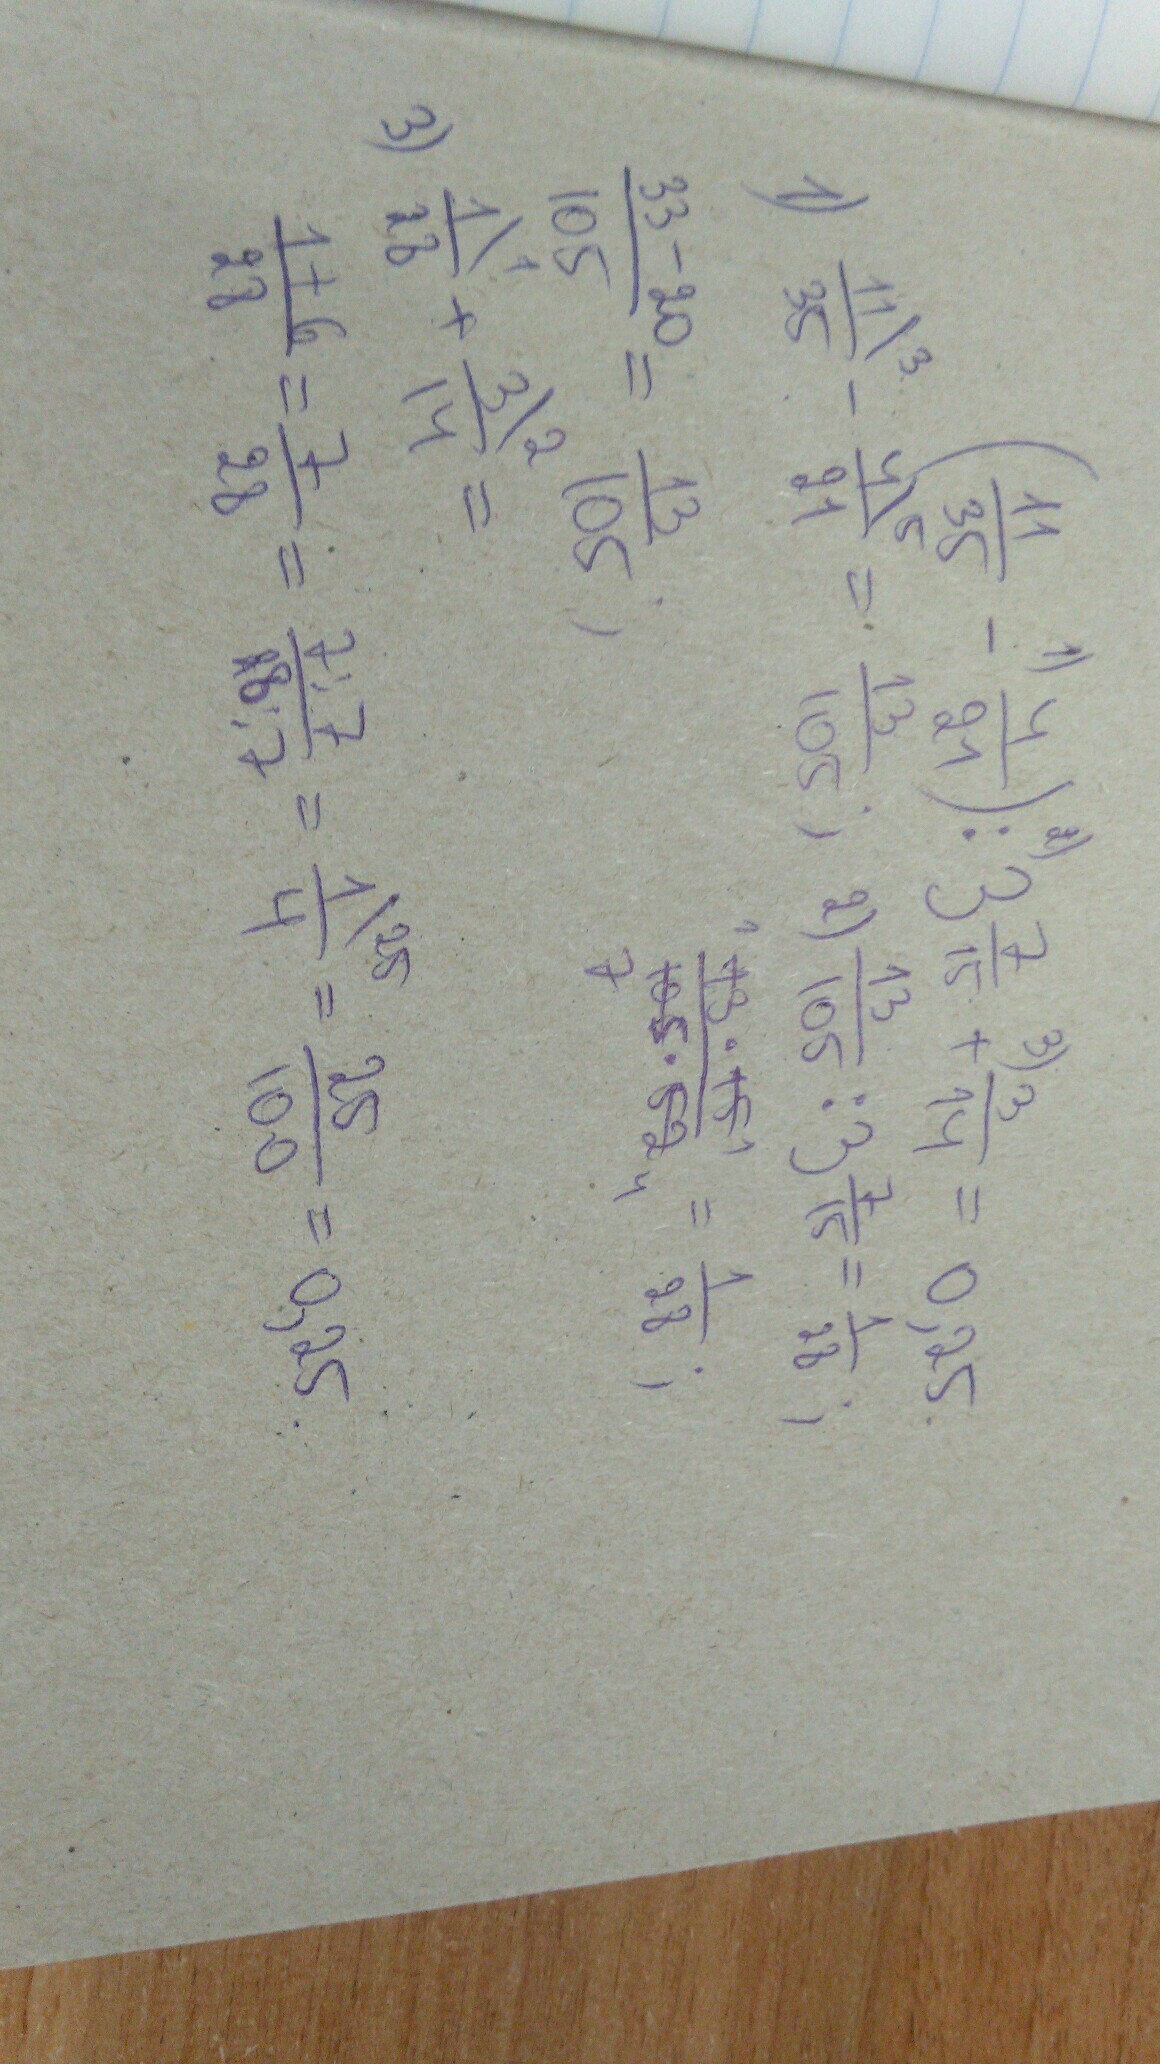 (11/35 - 1) 4/21) : 2) 3 7/15 + 3) 3/14 = 0,25.
1) 11/35 \3 - 4/21 \5 = 13/105 ; 2) 13/105 : 3 7/15 = 1/28 ;
33-20/105 = 13/105 ; 13·15/105·52 1 1 7 4 = 1/28 ;
3) 1/28 \1 + 3/14 \2 =
1+6/28 = 7/28 = 7:7/28:7 = 1/4 \25 = 25/100 = 0,25.